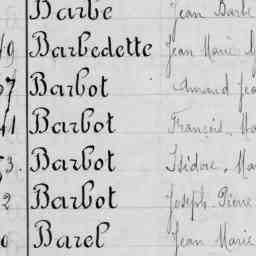 Barbe Jean Barbe
49 Barbedette Jean Marie
57 Barbot Amand
41 Barbot François
53. Barbot Isidore, Ma
2 Barbot Joseph Pierre
Barel Jean Marie